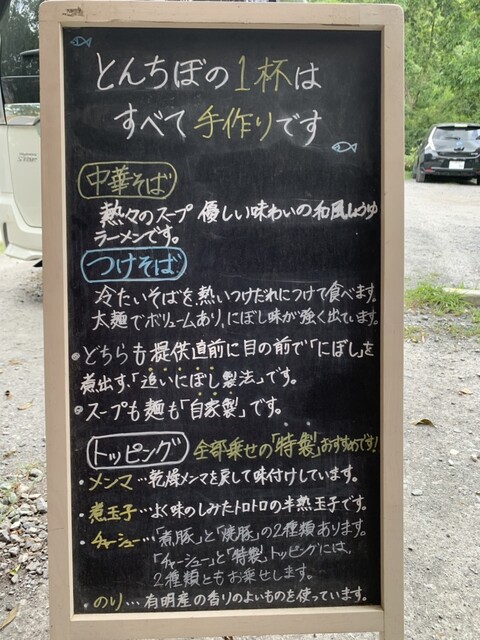 とんちぼの1杯は
すべて手作りです
中華そば
熱々のスープ 優しい味わいの和風しょうゆ
ラーメンです。
つけそば
冷たいそばを、熱いつけだれにつけて食べます。
太麺でボリュームあり、にぼし味が強く出ています。
●どちらも提供直前に目の前で「にぼし」を
煮出す、「追いにぼし製法」です。
●スープも麺も「自家製」です。
トッピング 全部乗せの「特製」おすすめです!
・メンマ…乾燥メンマを戻して味付けしています。
・煮玉子…よく味のしみたトロトロの半熟玉子です。
・チャーシュー…「煮豚」と「焼豚」の2種類あります。
「チャーシュー」と「特製」トッピングには、
2種類ともお乗せします。
・のり…有明産の香りのよいものを使っています。